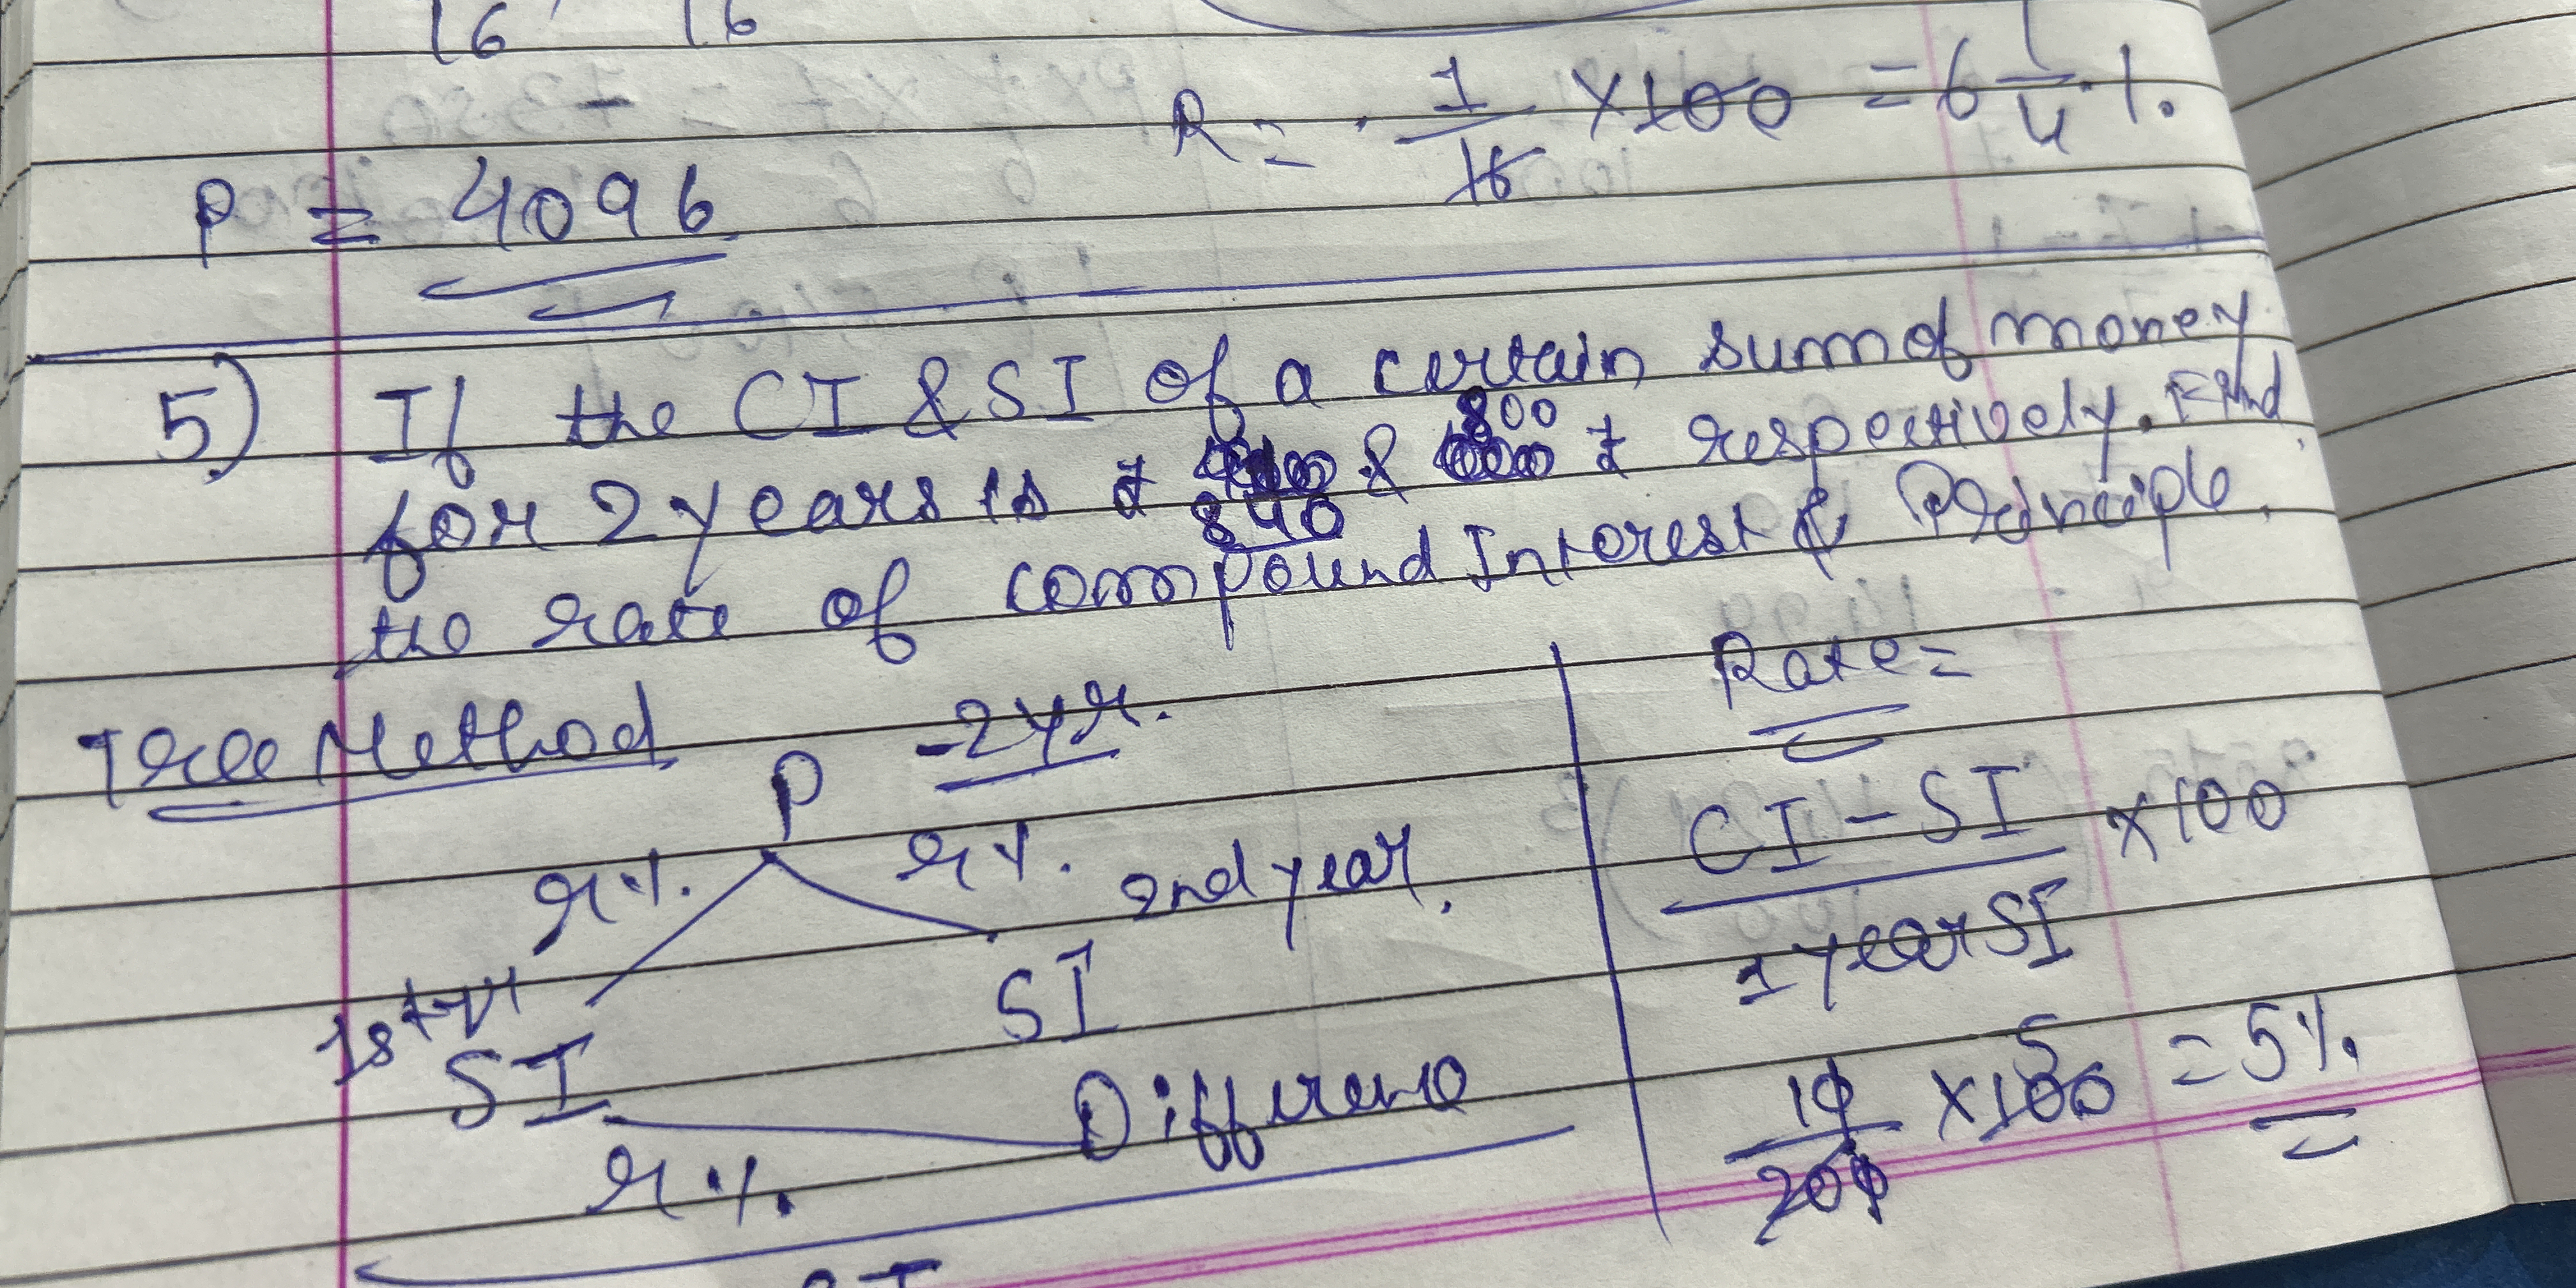 16 16
R = 1/16 ×100 = 6 1/4 %
P = 4096
5) If the CI & SI of a certain sum of money
for 2 years is ₹ 840 & 800 ₹ respectively. Find
the rate of compound Interest & Principle.
Tree Method
P - 2yr.
r% r% 2nd year.
1st yr
SI SI
r% Difference
Rate =
CI - SI / 1 year SI × 100
10/200 × 100 5 = 5%
SI